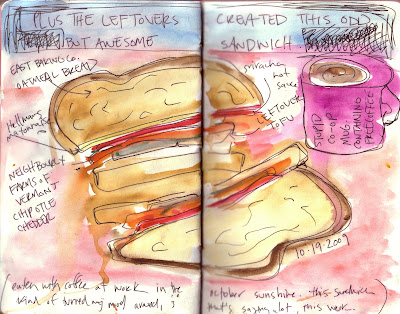 PLUS THE LEFTOVERS CREATED THIS ODD
BUT AWESOME SANDWICH.
EAST BAKING CO.
OATMEAL BREAD
Hellmans
mayonnaise
NEIGHBOURLY
FARMS OF
VERMONT
CHIPOTLE
CHEDDER
sriracha
hot
sauce
LEFTOVER
TOFU
STUPID
CO-OP
MUG.
CONTAINING
FREE COFFEE
10-19-2009
(eaten with coffee at work in the october sunshine. this sandwich
kind of turned my mood around, & that's saying a lot, this week.)